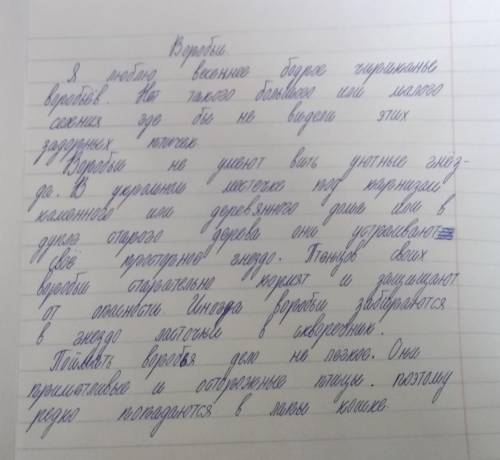 Воробьи.
Я люблю весеннее бодрое чириканье
воробьёв. Нет такого большого или малого
селения где бы не видели этих
задорных птичек.
Воробьи не умеют вить уютные гнёз-
да. В укромном местечке под карнизам
каменного или деревянного дома или в
дупле старого дерева они устраивают
своё просторное гнездо. Птенцов своих
воробьи старательно кормят и защищают
от опасности Иногда воробьи забираются
в гнездо ласточки в скворечник.
Поймать воробья дело не легкое. Они
приметливые и осторожные птицы. поэтому
редко попадаются в лапы кошке